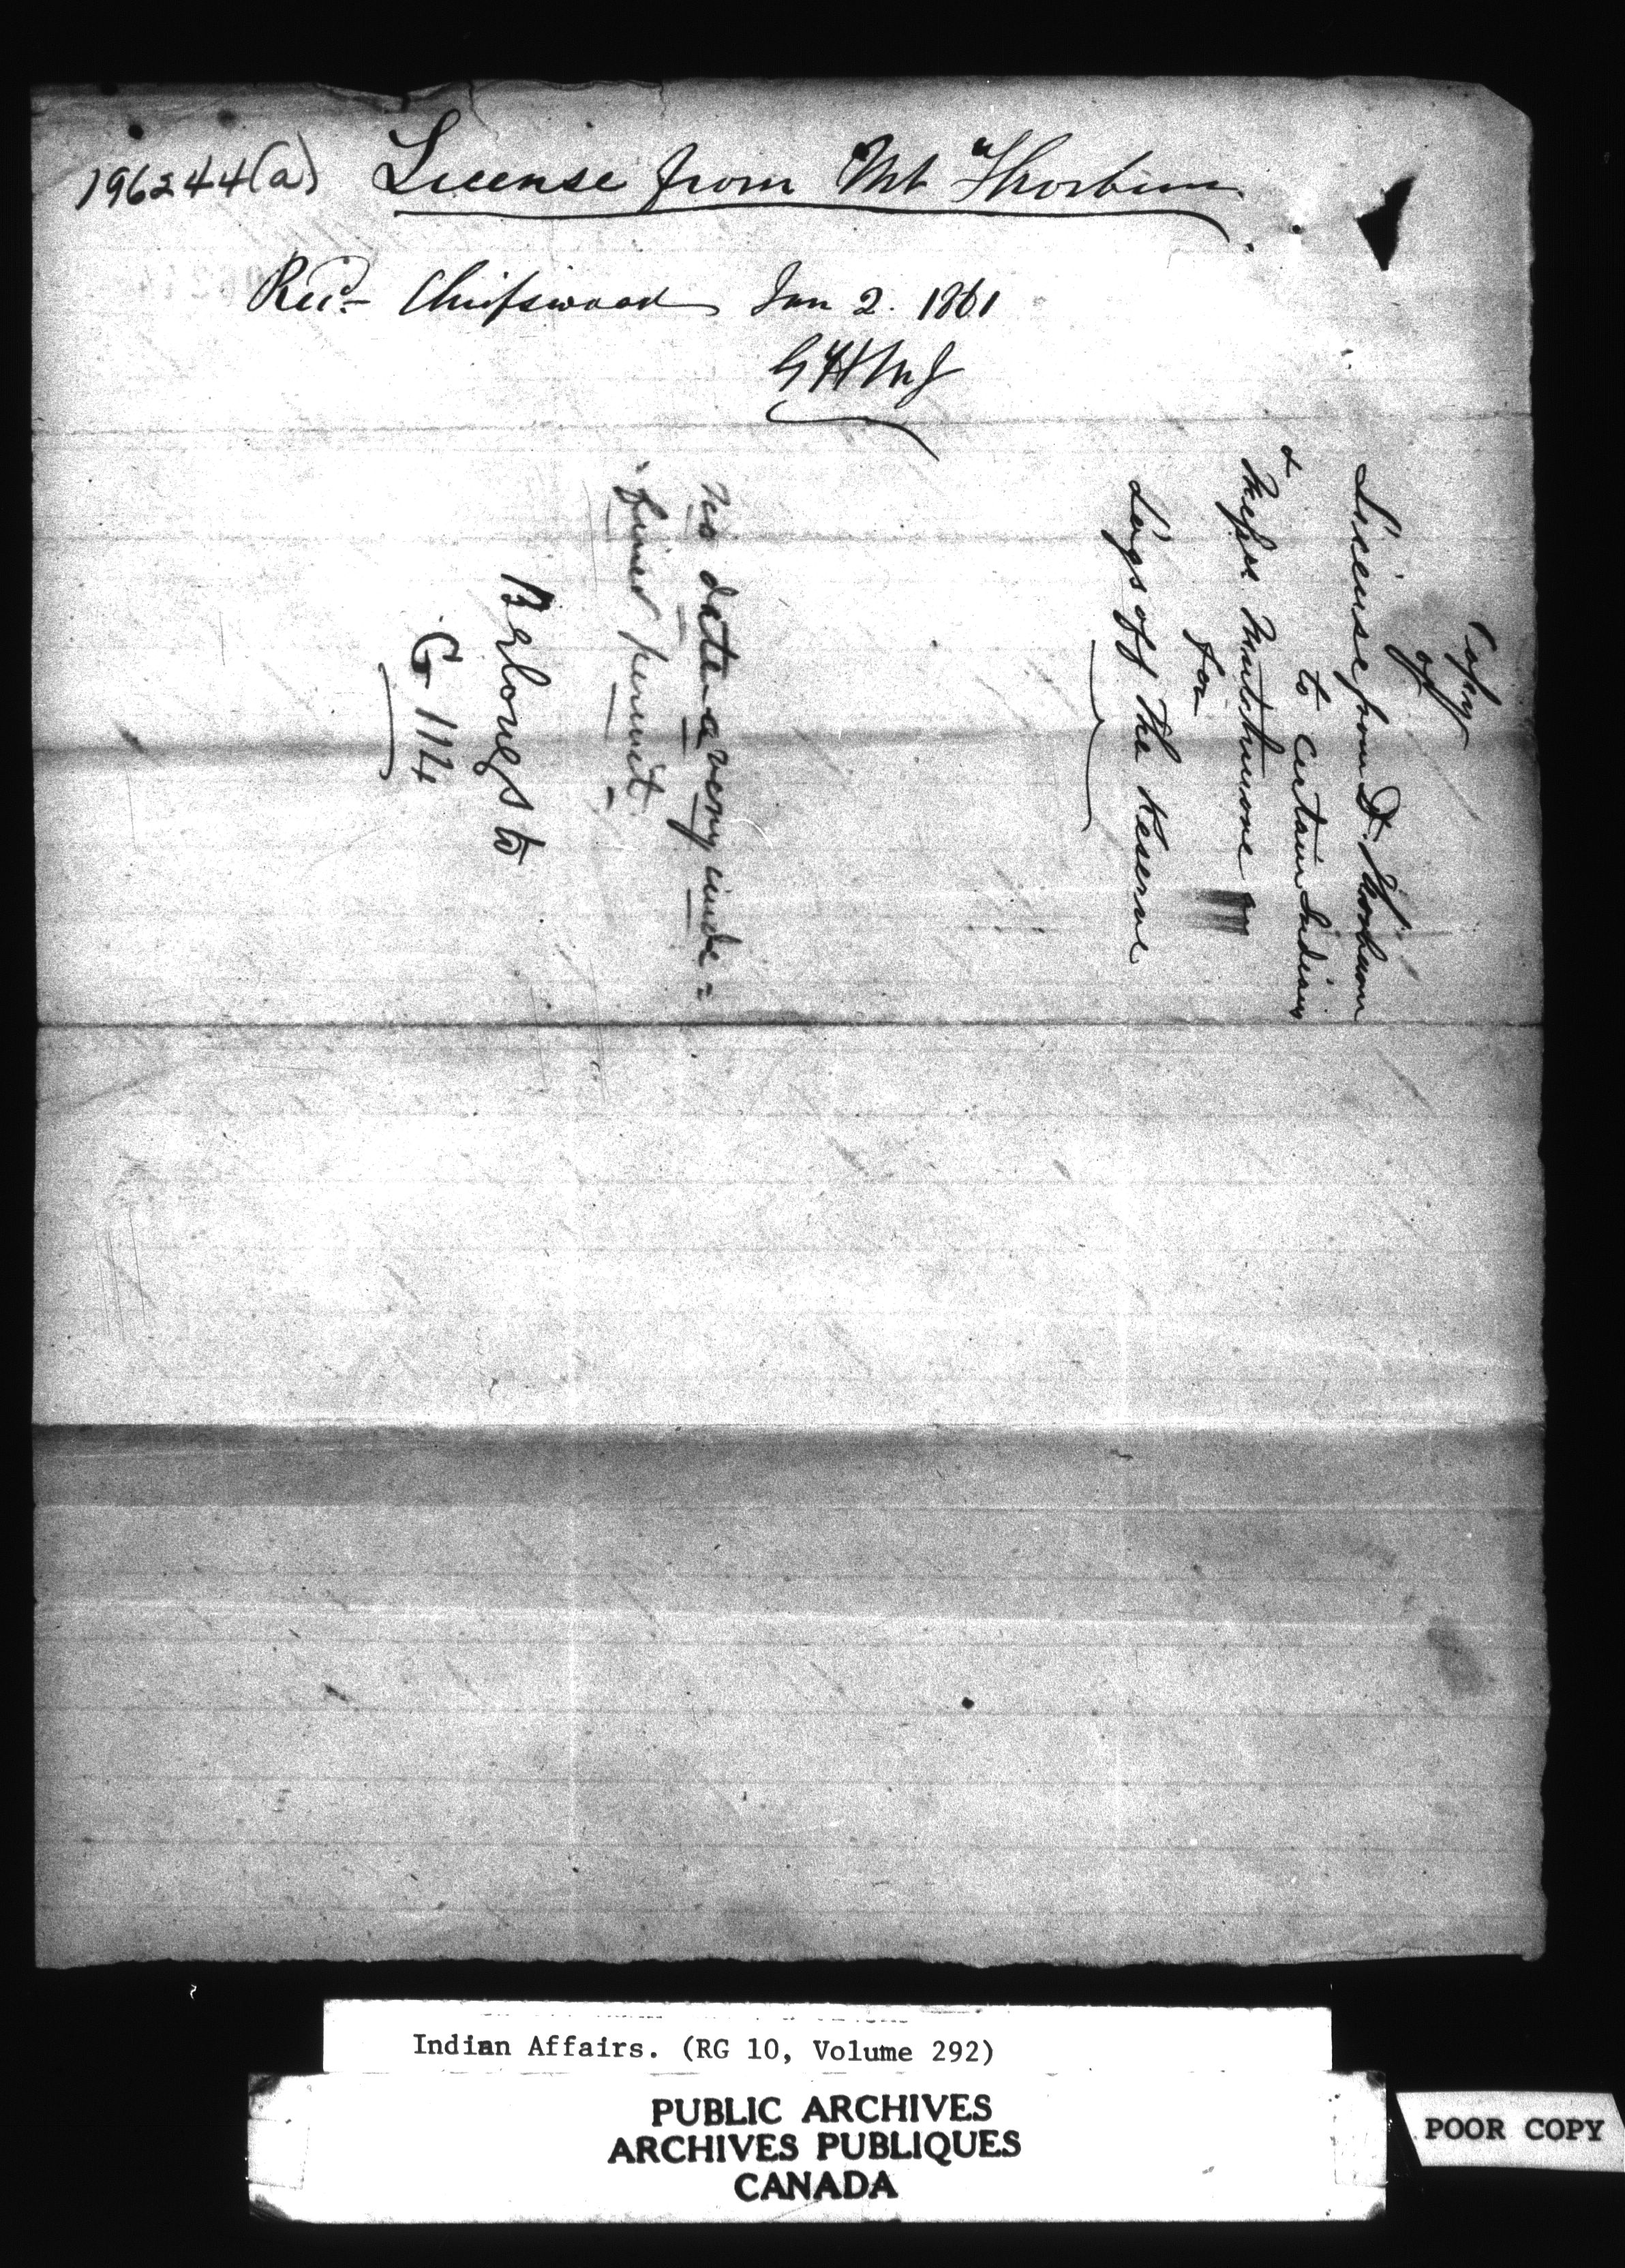 196244(a) License from Mr Thorburn
Recd Chiefswood Jan 2. 1861
GHMJ
Copy
of
License from D. Thorburn
to certain Indians
&
Messrs
for
Logs off the Reserve
No date - a very unde =
fined permit. -
Belongs to
G 114
Indian Affairs. (RG 10, Volume 292)
PUBLIC ARCHIVES
ARCHIVES PUBLIQUES
CANADA
POOR COPY